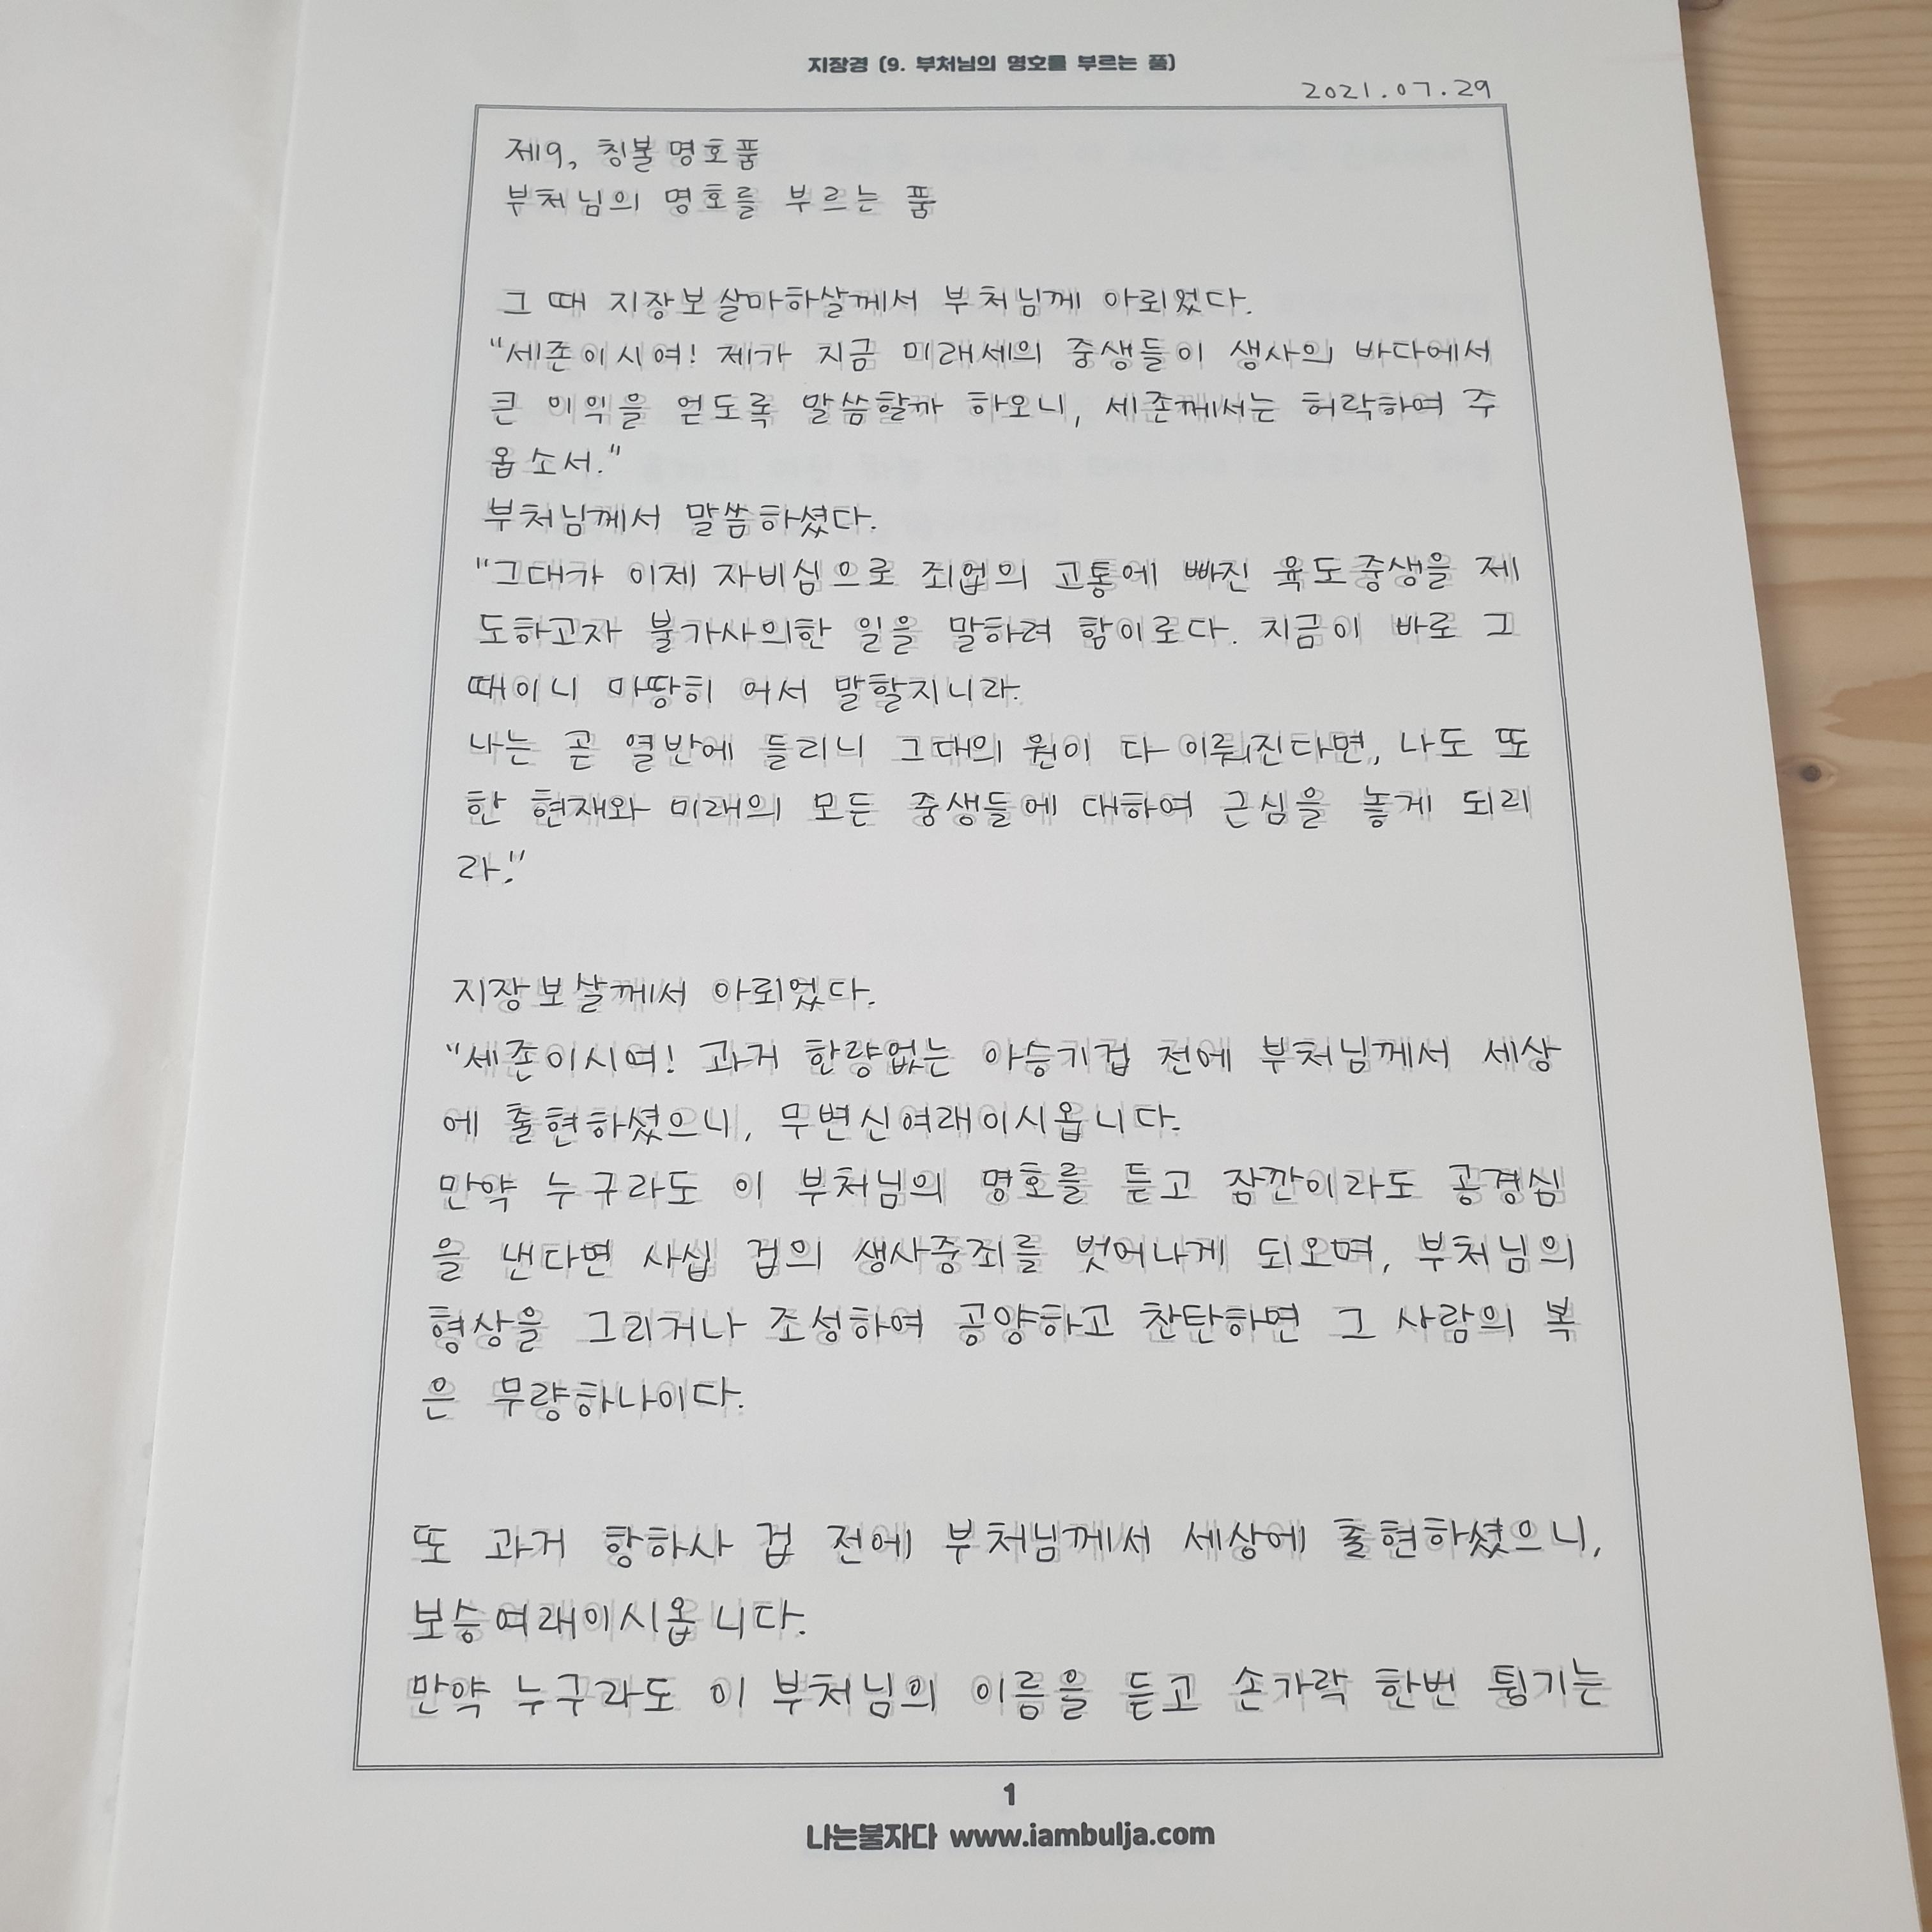 지장경 (9. 부처님의 명호를 부르는 품)
2021.07.29
제9, 칭불명호품
부처님의 명호를 부르는 품
그 때 지장보살마하살께서 부처님께 아뢰었다.
"세존이시여! 제가 지금 미래세의 중생들이 생사의 바다에서
큰 이익을 얻도록 말씀할까 하오니, 세존께서는 허락하여 주
옵소서."
부처님께서 말씀하셨다.
"그대가 이제 자비심으로 죄업의 고통에 빠진 육도중생을 제
도하고자 불가사의한 일을 말하려 함이로다. 지금이 바로 그
때이니 마땅히 어서 말할지니라.
나는 곧 열반에 들리니 그대의 원이 다 이뤄진다면, 나도 또
한 현재와 미래의 모든 중생들에 대하여 근심을 놓게 되리
라."
지장보살께서 아뢰었다.
"세존이시여! 과거 한량없는 아승기겁 전에 부처님께서 세상
에 출현하셨으니, 무변신여래이시옵니다.
만약 누구라도 이 부처님의 명호를 듣고 잠깐이라도 공경심
을 낸다면 사십 겁의 생사중죄를 벗어나게 되오며, 부처님의
형상을 그리거나 조성하여 공양하고 찬탄하면 그 사람의 복
은 무량하나이다.
또 과거 항하사 겁 전에 부처님께서 세상에 출현하셨으니,
보승여래이시옵니다.
만약 누구라도 이 부처님의 이름을 듣고 손가락 한번 튕기는
1
나는불자다 www.iambulja.com